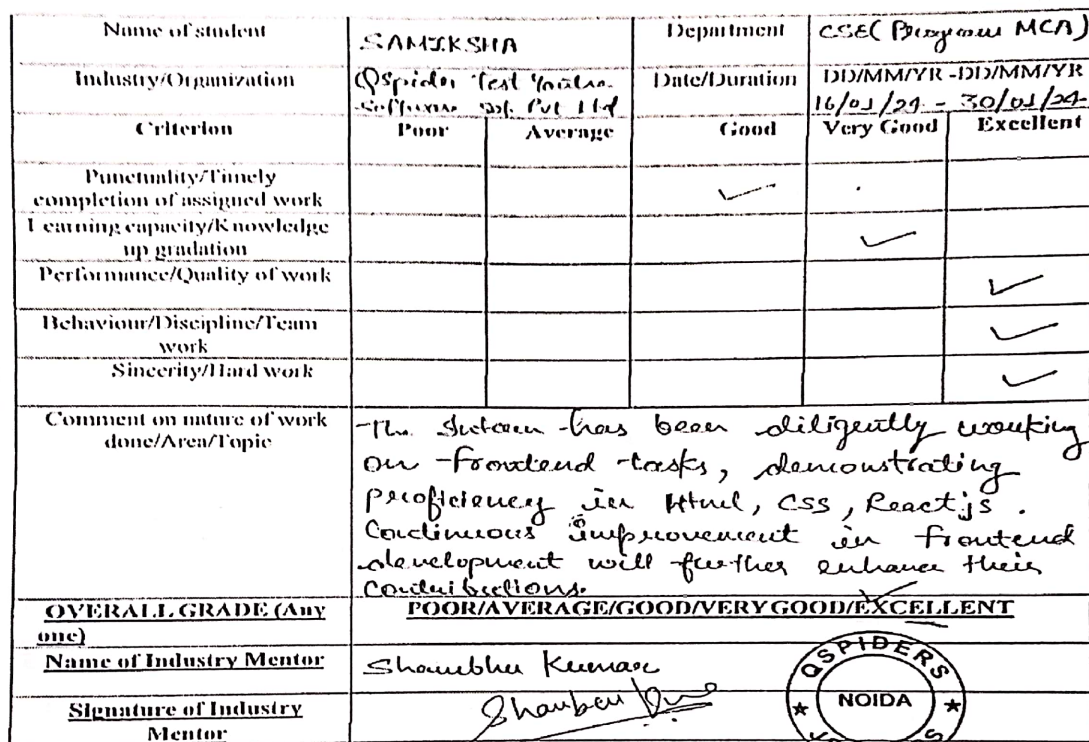 Name of student SAMIKSHA Department CSE( Program MCA)
Industry/Organization QSpider Test Date/Duration DD/MM/YR -DD/MM/YR
Software Pvt Ltd 16/01/24 - 30/01/24
Criterion Poor Average Good Very Good Excellent
Punctuality/Timely
completion of assigned work
Learning capacity/Knowledge
up gradation
Performance/Quality of work
Behaviour/Discipline/Team
work
Sincerity/Hard work
Comment on nature of work
done/Area/Topic
The Intern has been diligently working
on frontend tasks, demonstrating
proficiency in Html, CSS, React js.
Continuous improvement in frontend
development will further enhance their
contributions.
OVERALL GRADE (Any
one)
POOR/AVERAGE/GOOD/VERY GOOD/EXCELLENT
Name of Industry Mentor Shambhu Kumar
Signature of Industry
Mentor
QSPIDERS
NOIDA